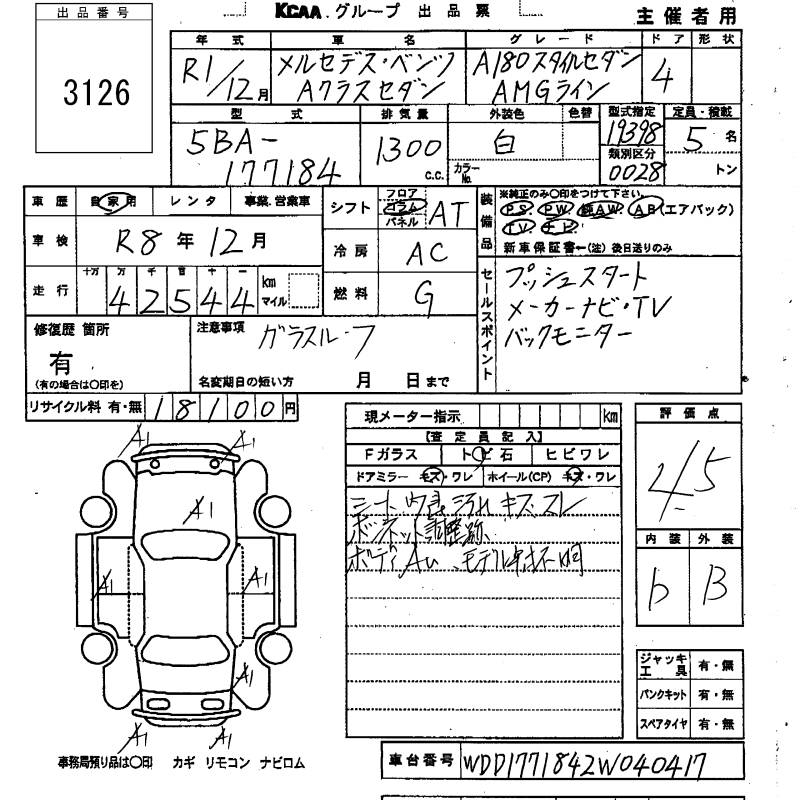 KCAA グループ 出品票
主催者用
出品番号
3126
年式 車名 グレード ドア 形状
R1/12月 メルセデス・ベンツ Aクラスセダン A180スタイルセダン AMGライン 4
型式 排気量 外装色 色替 型式指定 定員・積載
5BA-177184 1300 c.c. 白 カラーNo. 19398 5名
類別区分 0028 トン
車歴 自家用 レンタ 事業.営業車
シフト フロア コラム パネル AT
装備品 ※純正のみ○印をつけて下さい
P.S. P.W. 純AW. A.B(エアバック)
TV. ナビ.
新車保証書ー(注)後日送りのみ
車検 R8年12月
冷房 AC
走行 十万 万 千 百 十 一
42544 km マイル
燃料 G
セールスポイント
プッシュスタート
メーカーナビ・TV
バックモニター
修復歴 箇所
有
(有の場合は○印を)
注意事項 ガラスルーフ
名変期日の短い方 月 日まで
リサイクル料 有・無 18100円
現メーター指示 km
【査定員記入】
Fガラス トビ石 ヒビワレ
ドアミラー キズ・ワレ ホイール(CP) キズ・ワレ
シート 内張 汚れ キズ スレ
ボンネット調整跡
ボディAu、モデル
評価点
4.5
内装 外装
b B
A1 A1
A1
A1 A1
A1
A1 A1
ジャッキ工具 有・無
パンクキット 有・無
スペアタイヤ 有・無
事務局預り品は○印 カギ リモコン ナビロム
車台番号 WDD1771842W040417